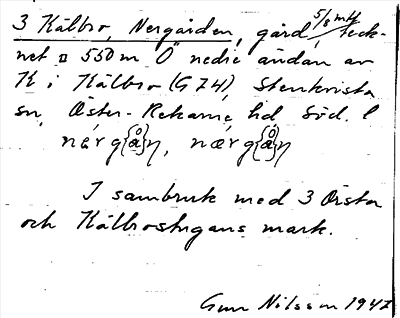 3 Kälbro, Nergården, gård, 5/8 mtl, teck-
net ¤ 550 m Ö nedre ändan av
K i Kälbro (G 74), Stenkvista
sn, Öster-Rekarne hd Söd. l
nærg{å}n, nærg{å}n
I sambruk med 3 Örsta
och Kälbrostugans mark.
Gun Nilsson 1942